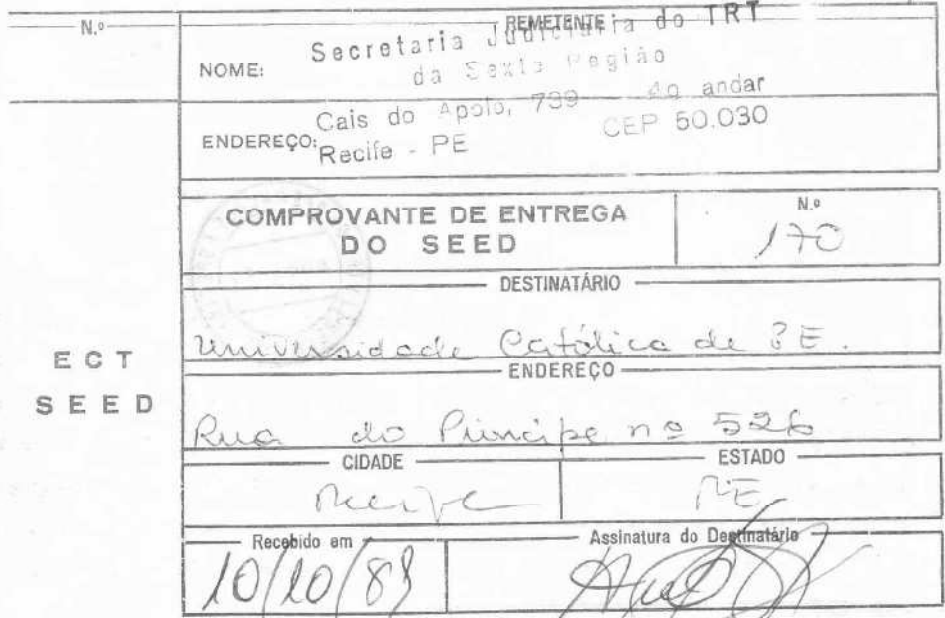 N.º
REMETENTE
NOME: Secretaria Judiciária do TRT
da Sexta Região
ENDEREÇO: Cais do Apolo, 739 4o andar
Recife - PE CEP 50.030
COMPROVANTE DE ENTREGA
DO SEED
N.º
170
DESTINATÁRIO
Universidade Católica de PE.
ECT
SEED
ENDEREÇO
Rua do Príncipe nº 526
CIDADE
Recife
ESTADO
PE
Recebido em
10/10/89
Assinatura do Destinatário